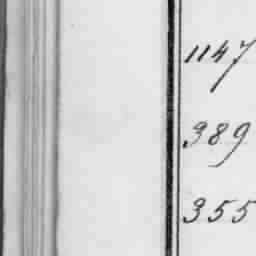 1147
389
355